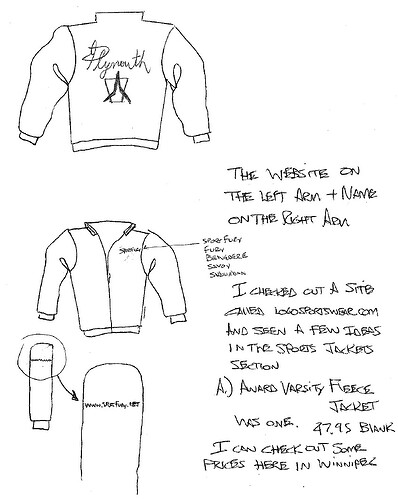 Plymouth
THE WEBSITE ON
THE LEFT ARM + NAME
ON THE RIGHT ARM
SPORT FURY
FURY
BELVEDERE
SAVOY
SUBURBAN
I CHECKED OUT A SITE
CALLED LOGOSPORTSWEAR.COM
AND SEEN A FEW IDEAS
IN THE SPORTS JACKETS
SECTION
A.) AWARD VARSITY FLEECE
JACKET
WAS ONE. BLANK
I CAN CHECK OUT SOME
PRICES HERE IN WINNIPEG